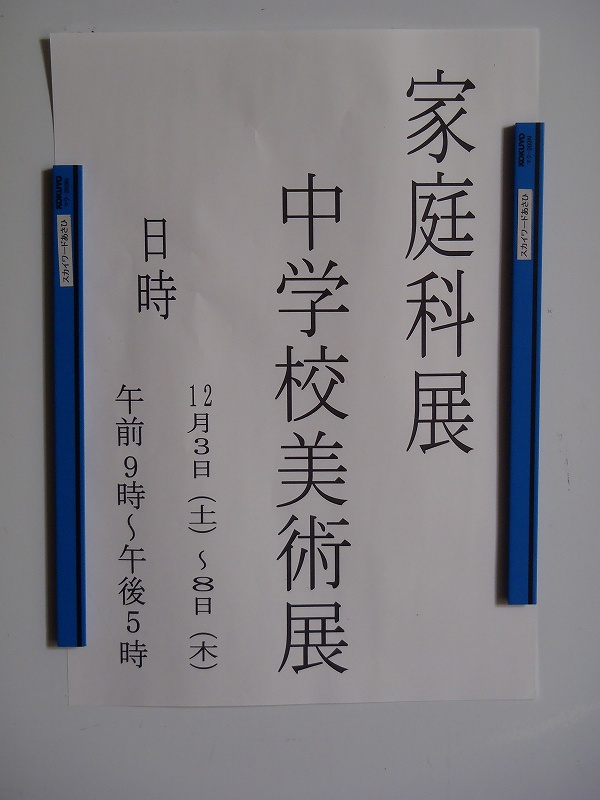 家庭科展
中学校美術展
日時
12月3日（土）～8日（木）
午前9時～午後5時
KOKUYO
スカイワードあさひ
KOKUYO
スカイワードあさひ